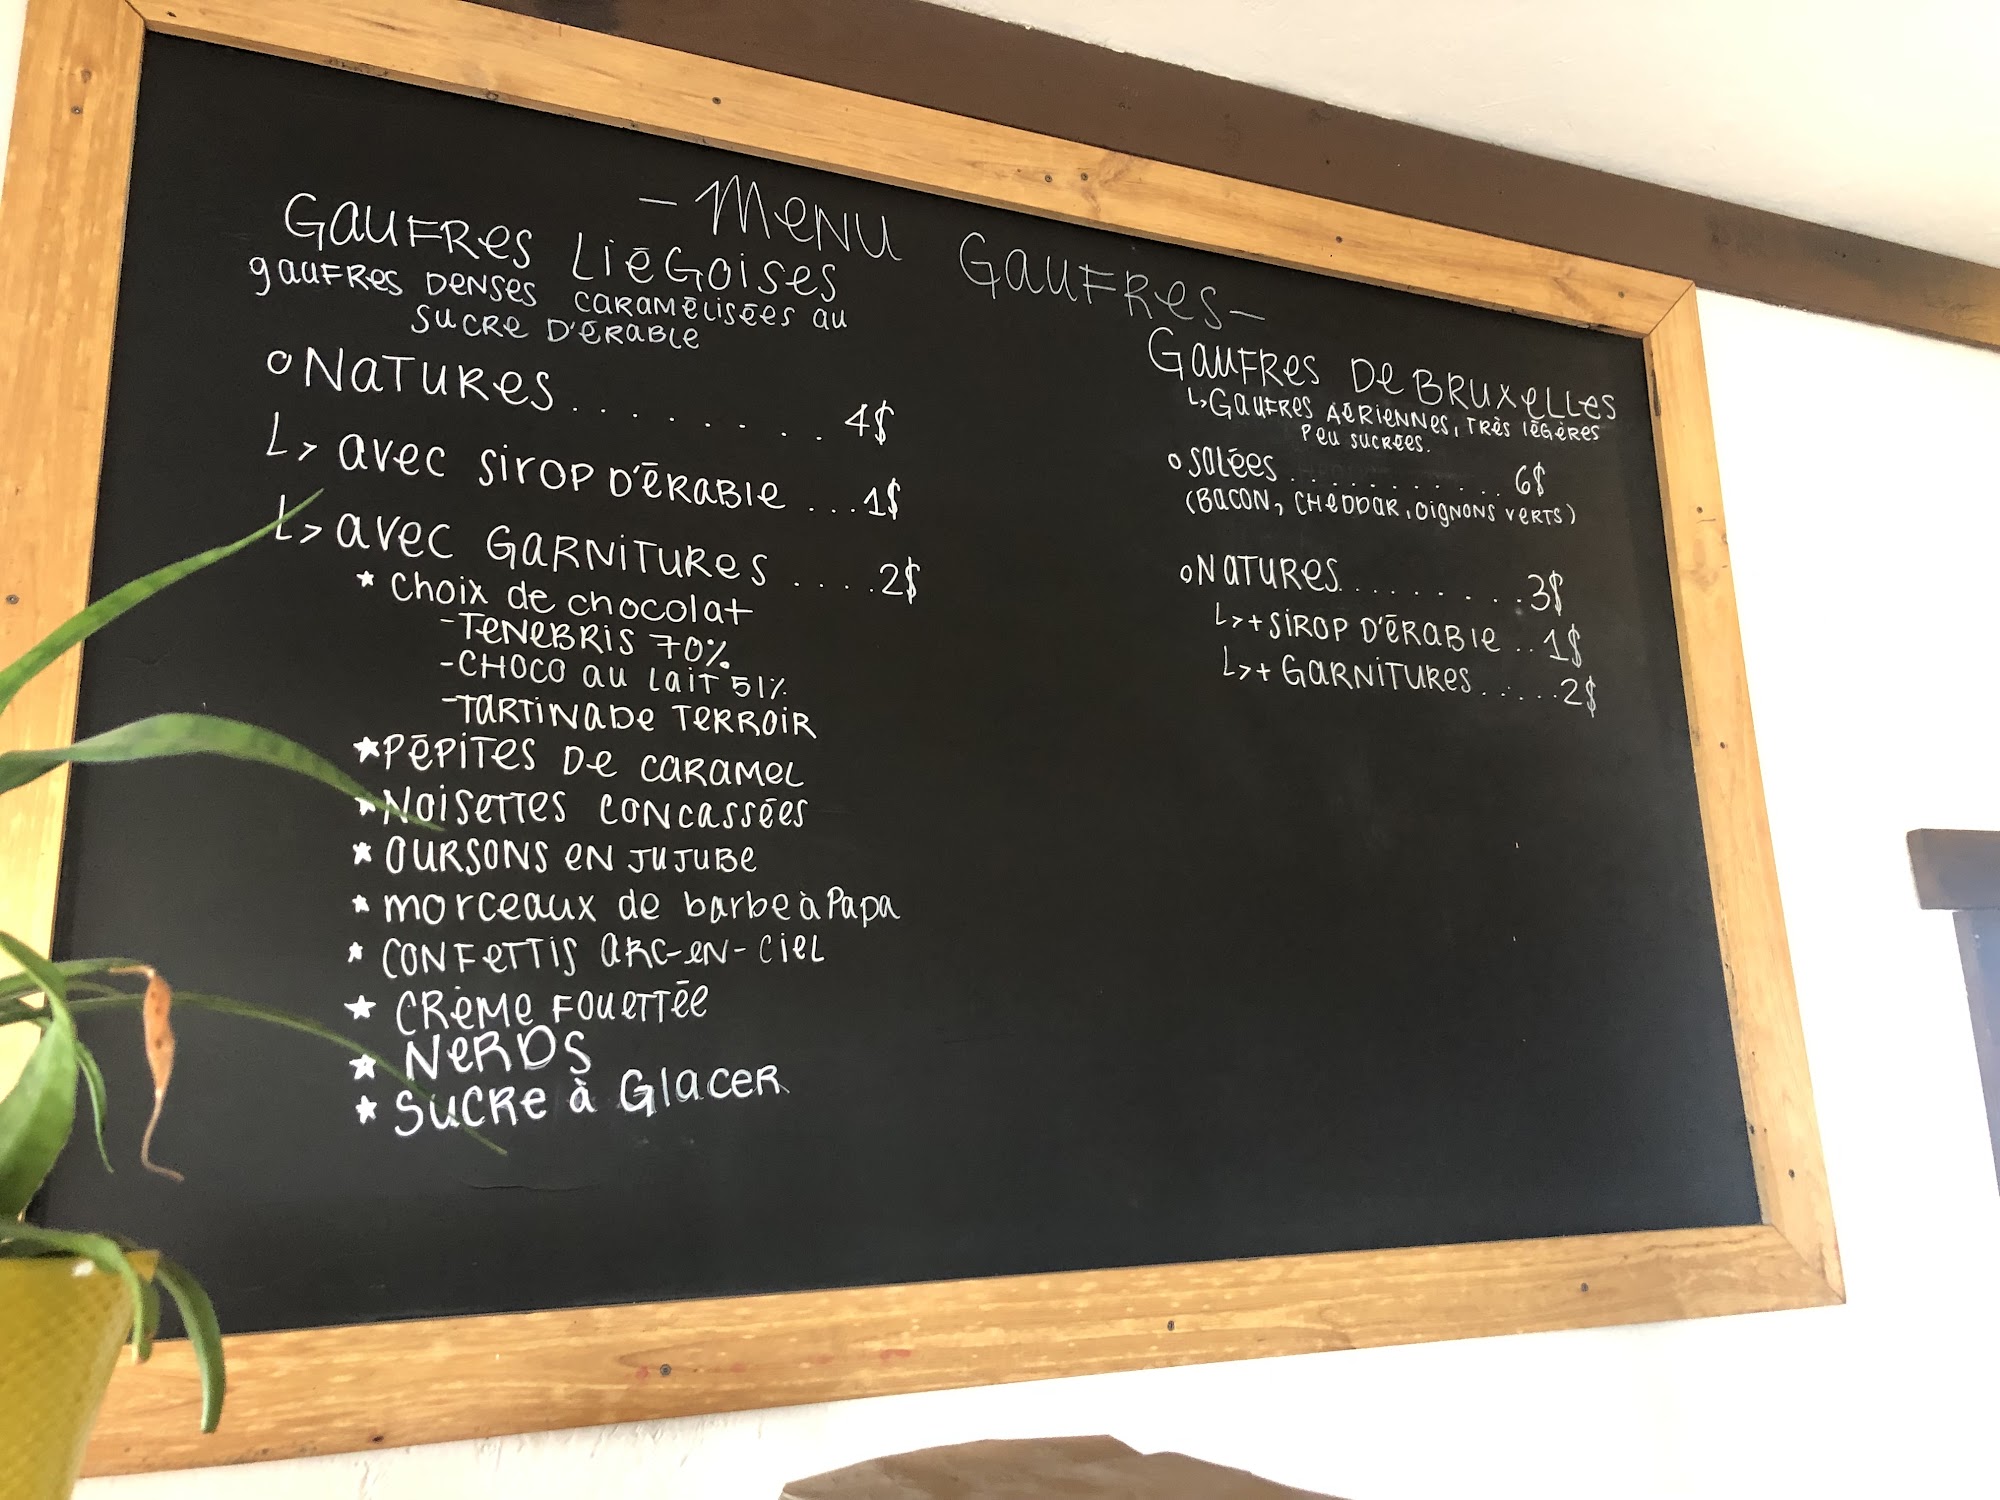 - Menu Gaufres -
Gaufres Liégoises
gaufres denses caramélisées au
sucre d'érable
o Natures . . . . . . . 4$
↳ avec sirop d'érable . . . 1$
↳ avec garnitures . . . . 2$
* choix de chocolat
- Tenebris 70%
- choco au lait 51%
- tartinade terroir
* pépites de caramel
* Noisettes concassées
* oursons en jujube
* morceaux de barbe à papa
* confettis arc-en-ciel
* crème fouettée
* Nerds
* sucre à glacer
Gaufres de Bruxelles
↳ Gaufres aériennes, très légères
peu sucrées.
o salées . . . . . . . . . . . 6$
(Bacon, cheddar, oignons verts)
o Natures . . . . . . . . . 3$
↳ + sirop d'érable . . 1$
↳ + garnitures . . . . . 2$